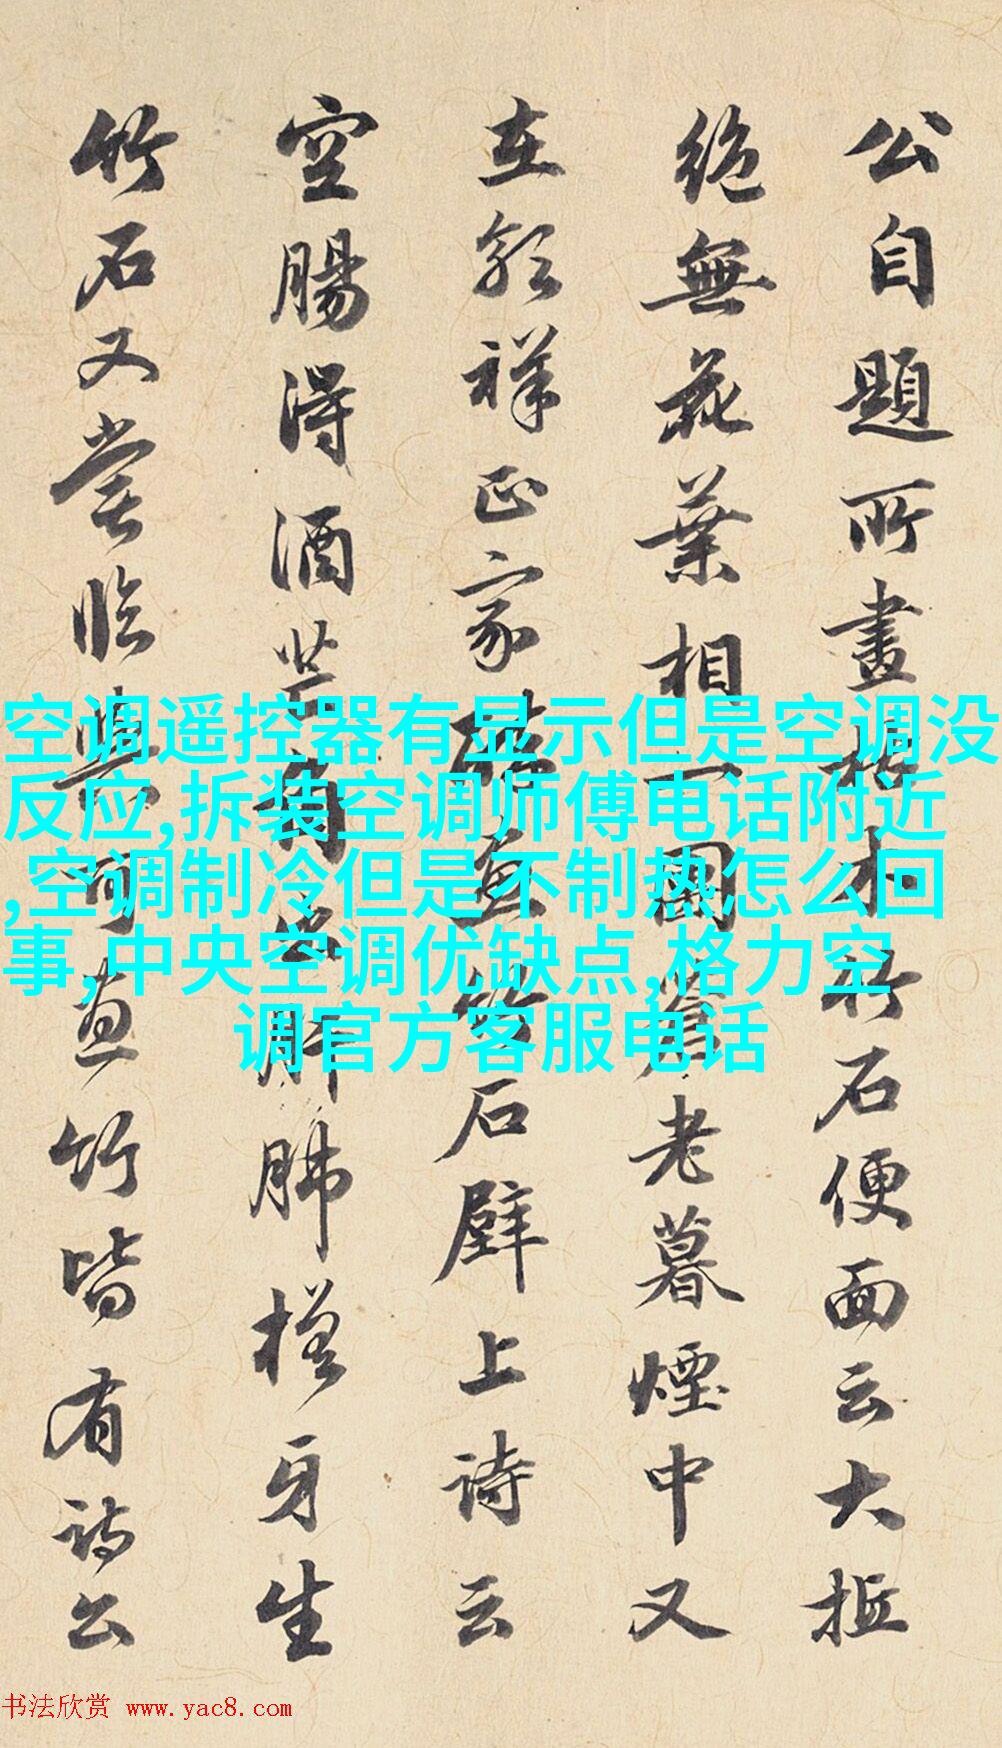 公自題所畫枯木竹石便面云大抵
絶無花葉相一團蒼老暮煙中又
在郭祥正家醉畫竹石壁上詩云
空腸得酒芒角出肝肺槎牙生
竹石又嘗臨與可畫竹皆有詩公
空调遥控器有显示但是空调没
反应,拆装空调师傅电话附近
,空调制冷但是不制热怎么回
事,中央空调优缺点,格力空
调官方客服电话
书法欣赏 www.yac8.com